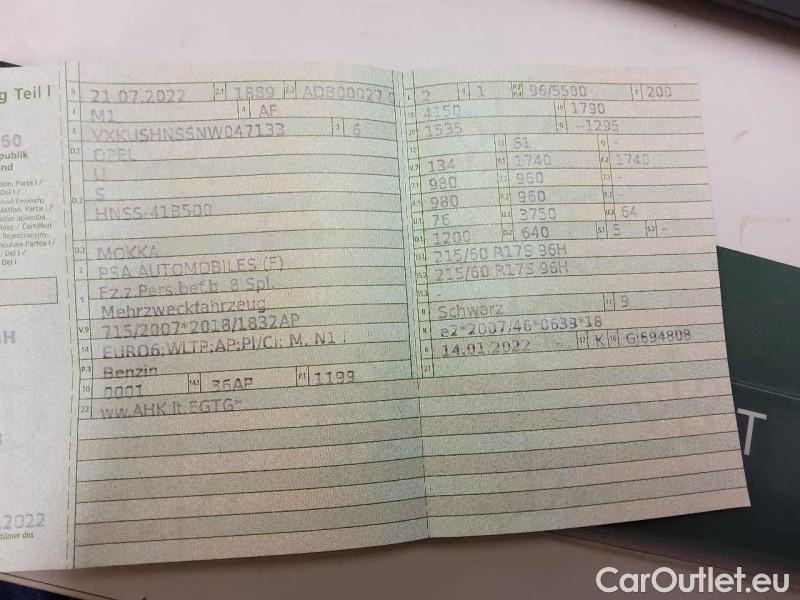 g Teil I
60
publik
and
B 21.07.2022 2.1 1889 2.2 ADB00027
J M1 4 AF
E VXKUSHNSSNW047133 3 6
D.1 OPEL
D.2 U
S
HNSS-41B500
D.3 MOKKA
2 PSA AUTOMOBILES (F)
5 Fz.z.Pers.bef.b. 8 Spl.
Mehrzweckfahrzeug
V.9 715/2007*2018/1832AP
14 EURO6;WLTP;AP;PI/CI; M, N1 I
P.3 Benzin
10 0001 14.1 36AP P.1 1199
22 ww.AHK lt.EGTG*
L 2 9 1 P.2 P.4 96/5500 T 200
18 4150 19 1790
20 1535 G -1295
12 - 13 61 Q -
V.7 134 F.1 1740 F.2 1740
7.1 980 7.2 960 7.3 -
8.1 980 8.2 960 8.3 -
U.1 76 U.2 3750 U.3 64
O.1 1200 O.2 640 S.1 5 S.2 -
15.1 215/60 R17S 96H
15.2 215/60 R17S 96H
15.3 -
R Schwarz 11 9
K e2*2007/46*0639*18
6 14.01.2022 17 K 16 GI694808
21
.2022
CarOutlet.eu